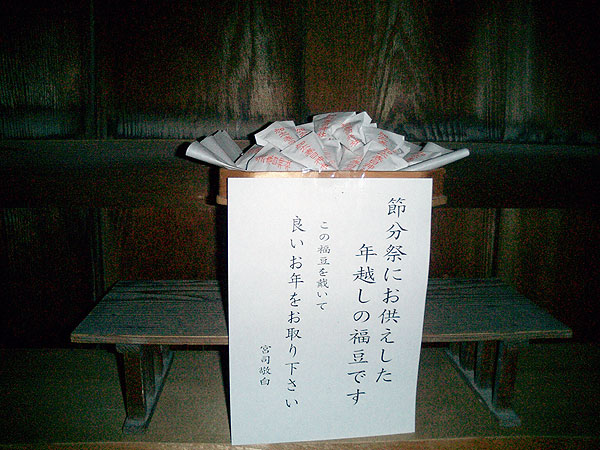 節分祭にお供えした
年越しの福豆です
この福豆を戴いて
良いお年をお取り下さい
宮司敬白